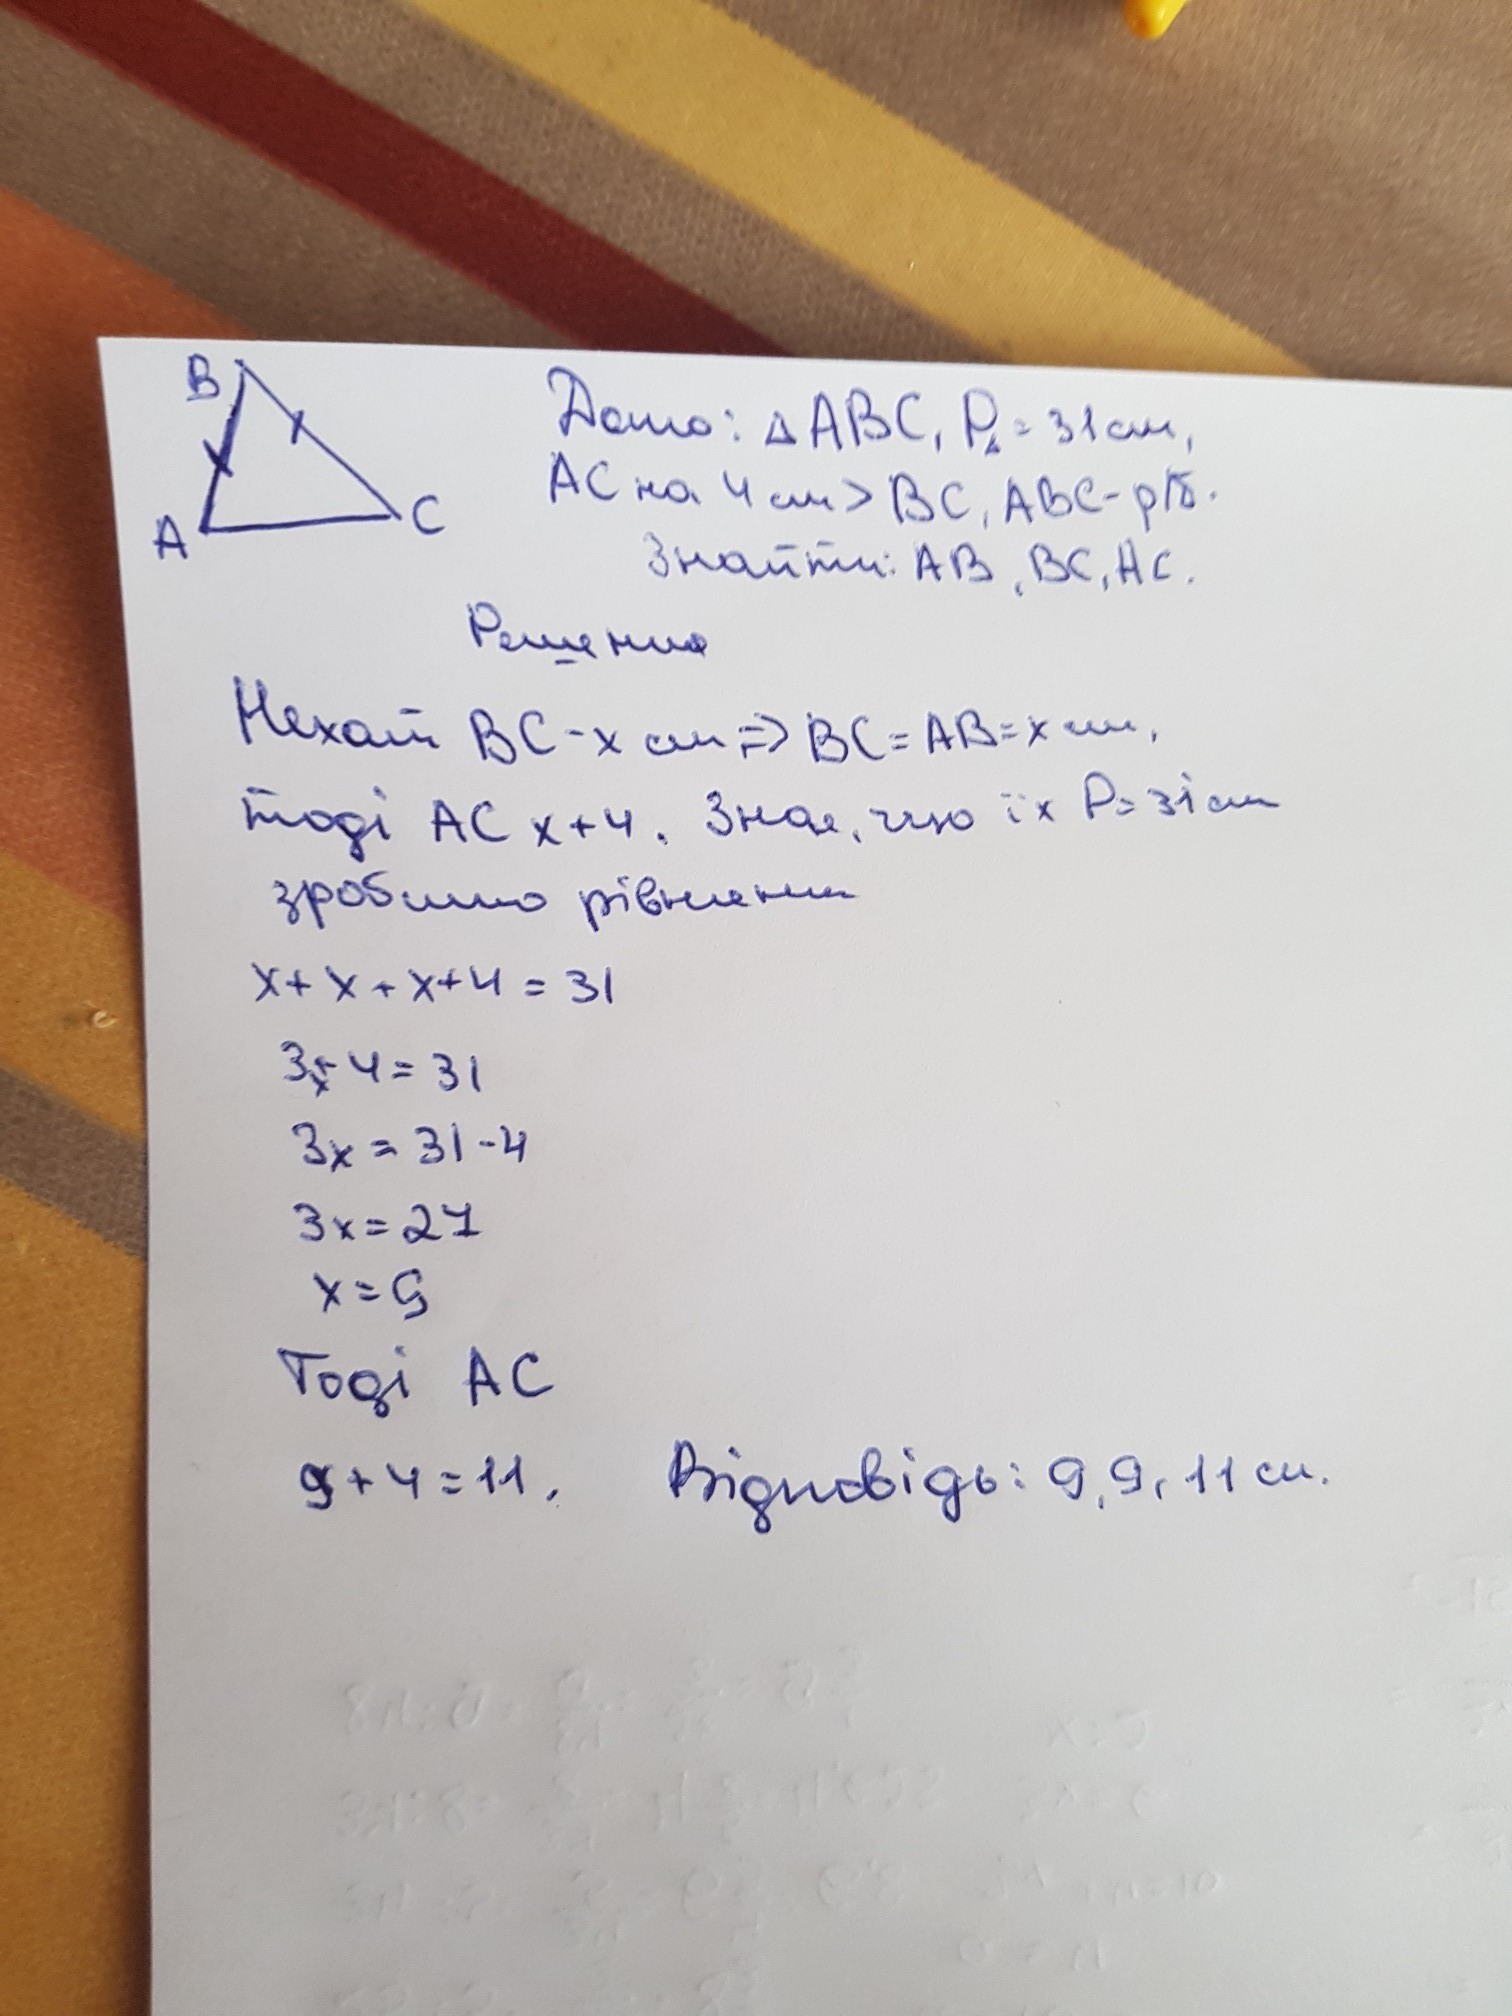 B
A
C
Дано: △ABC, P△=31см,
AC на 4 см > BC, ABC-р/б.
Знайти: AB, BC, AC.
Решения
Нехай BC-x см => BC=AB=x см,
тоді AC x+4. Знає, що їх P=31см
зробимо рівняння
x+x+x+4=31
3x+4=31
3x=31-4
3x=27
x=9
Тоді AC
9+4=11. Відповідь: 9, 9, 11 см.